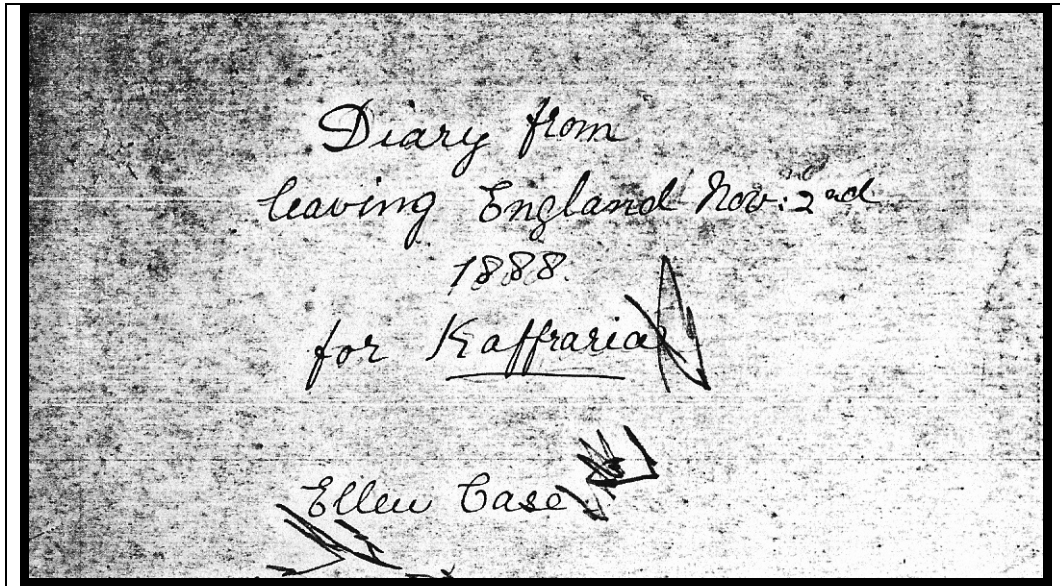 Diary from
leaving England Nov: 2nd
1888.
for Kaffraria
Ellen Case